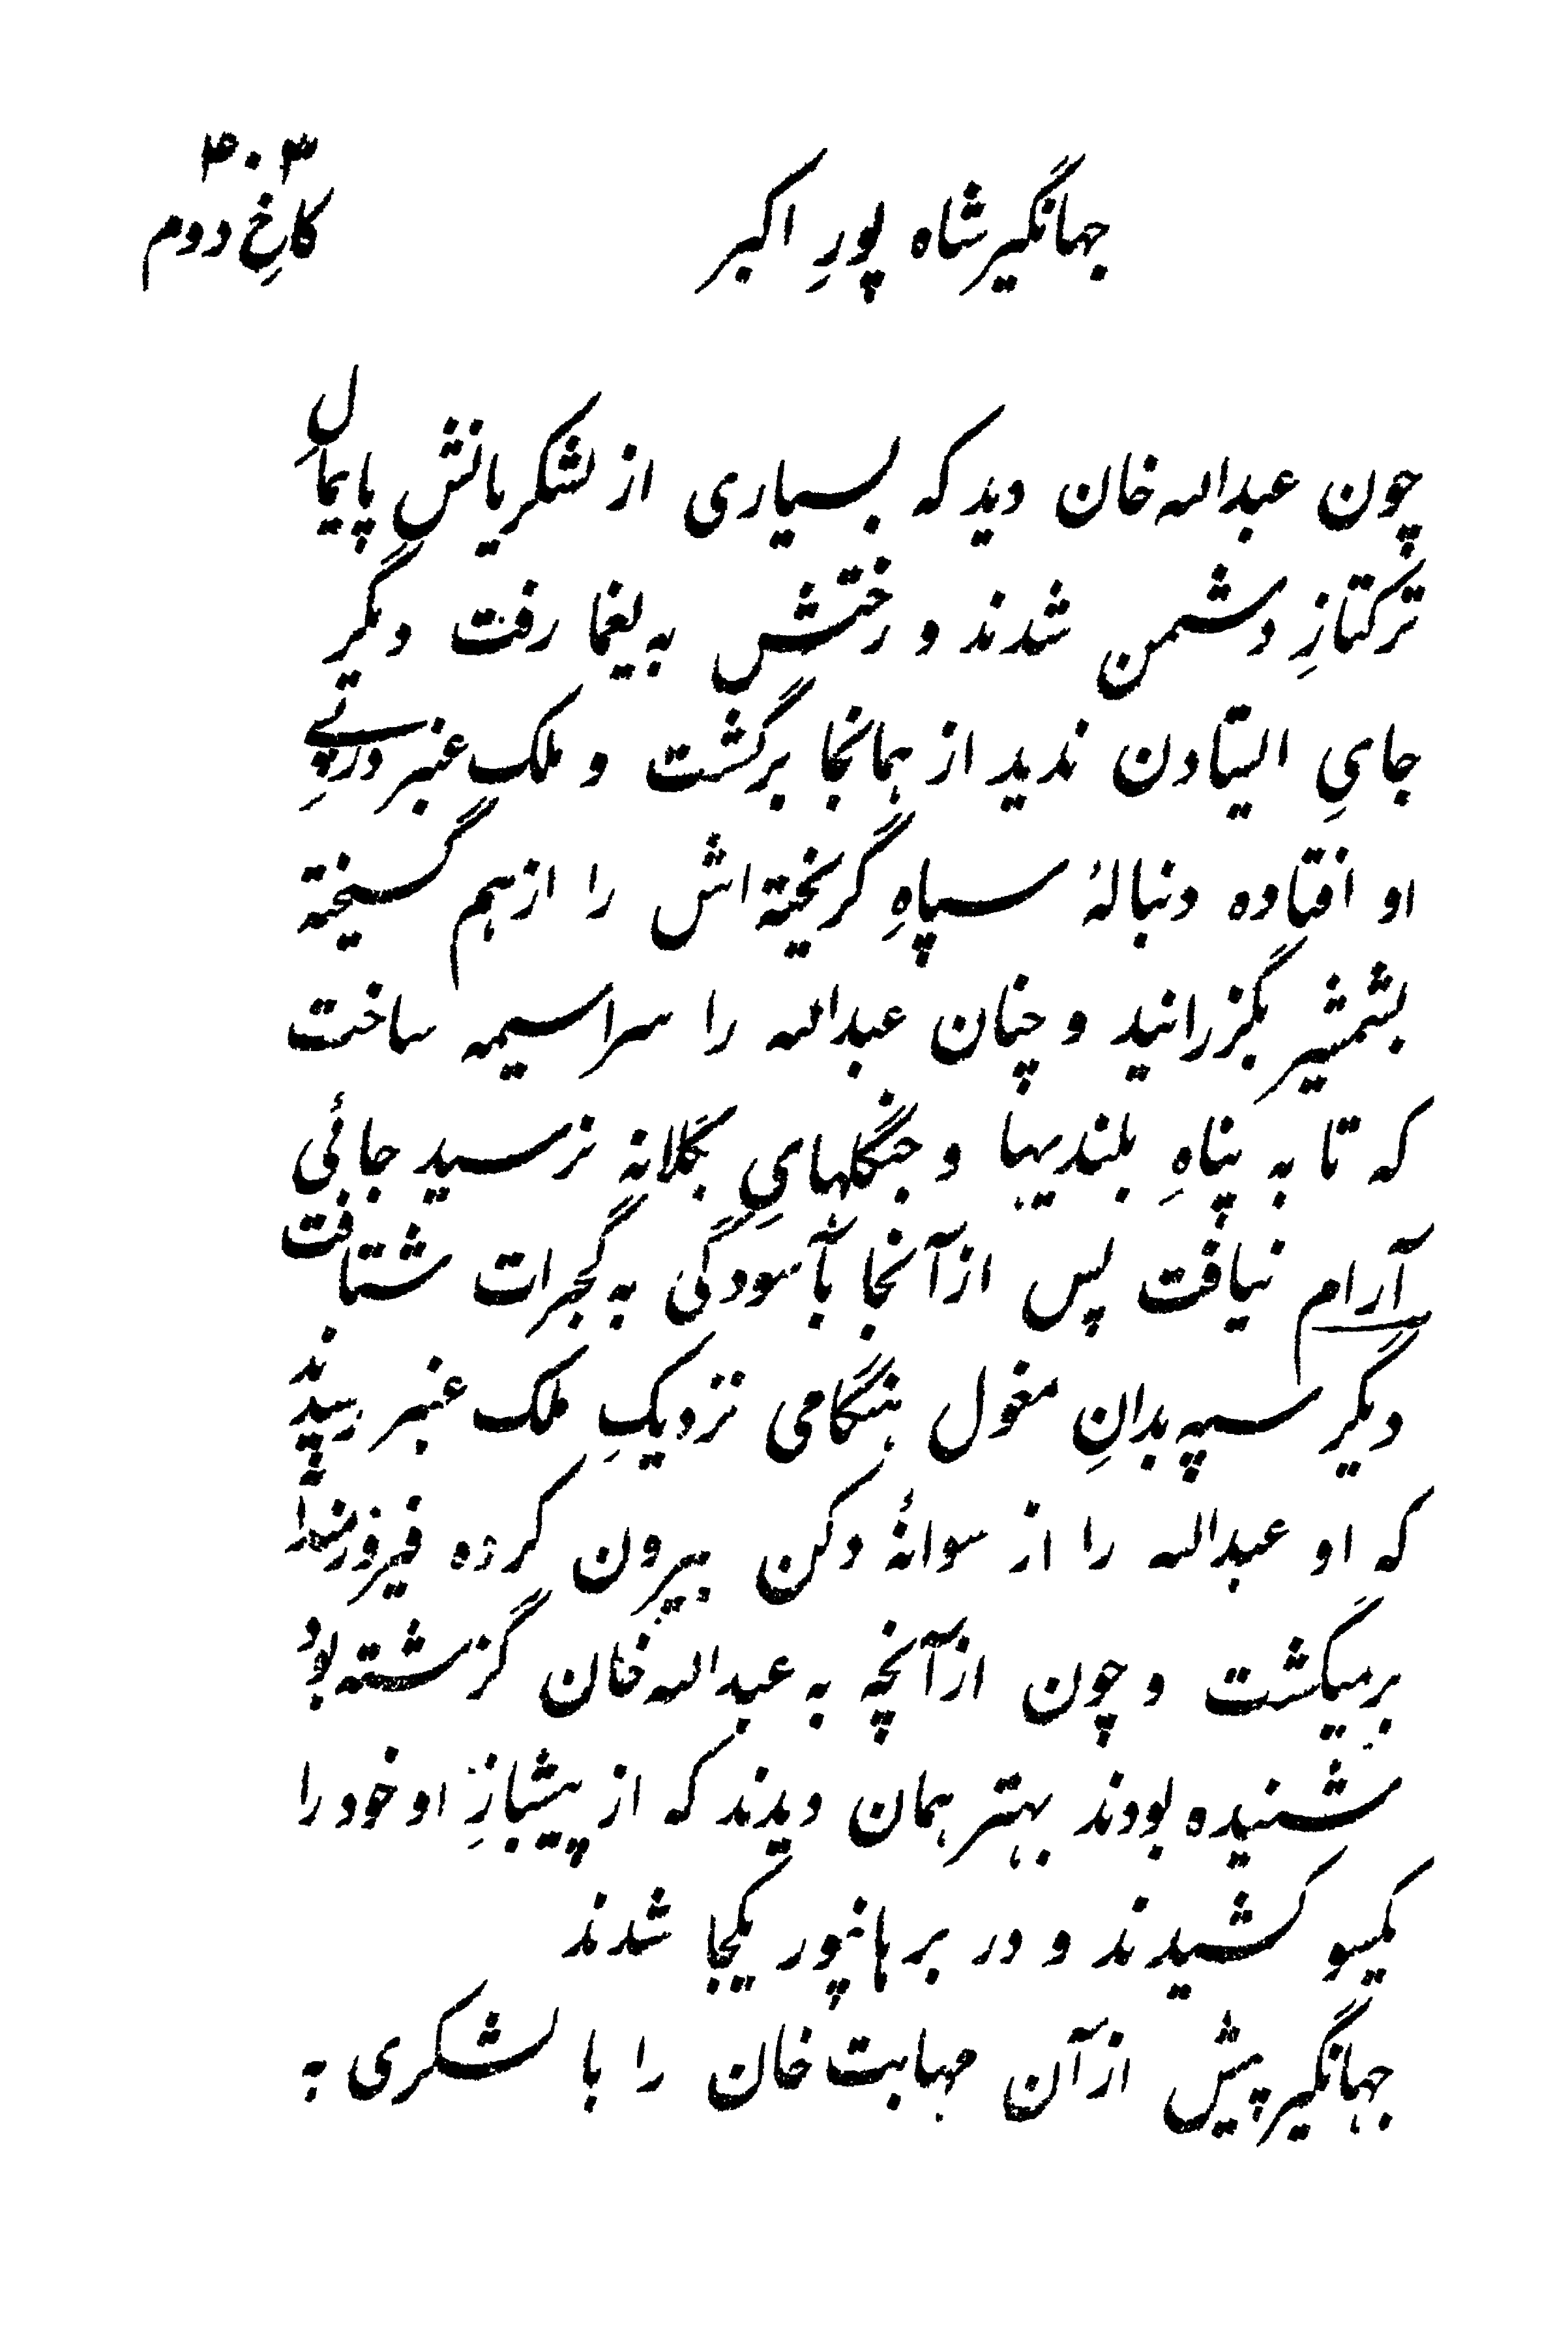 ۴۰۳
جهانگیرشاه پورِ اکبر کاخِ دوم
چون عبدالله خان دید که بسیاری از لشکریانش پایمالِ
ترکتازِ دشمن شدند و رختش به یغما رفت دیگر
جایِ ایستادن ندید از همانجا برگشت و ملک عنبر در پےِ
او افتاده دنبالۀ سپاهِ گریخته اش را از هم گسیخته
بشمشیر بگزرانید و چنان عبدالله را سراسیمه ساخت
که تا به پناهِ بلندیها و جنگلهایِ بگلانه نرسید جائی
آرام نیافت پس از آنجا بآسودگی به گجرات شتافت
دیگر سپه بدانِ مغول هنگامی نزدیکِ ملک عنبر رسیدند
که او عبدالله را از سوانۀ دکن بیرون کرده فیروزمندانه
برمیگشت و چون از آنچه به عبدالله خان گزشته بود
شنیده بودند بهتر همان دیدند که از پیشبازِ او خود را
یکسو کشیدند و در برهانپور یکجا شدند
جهانگیر پیش از آن مهابت خان را با لشکری به